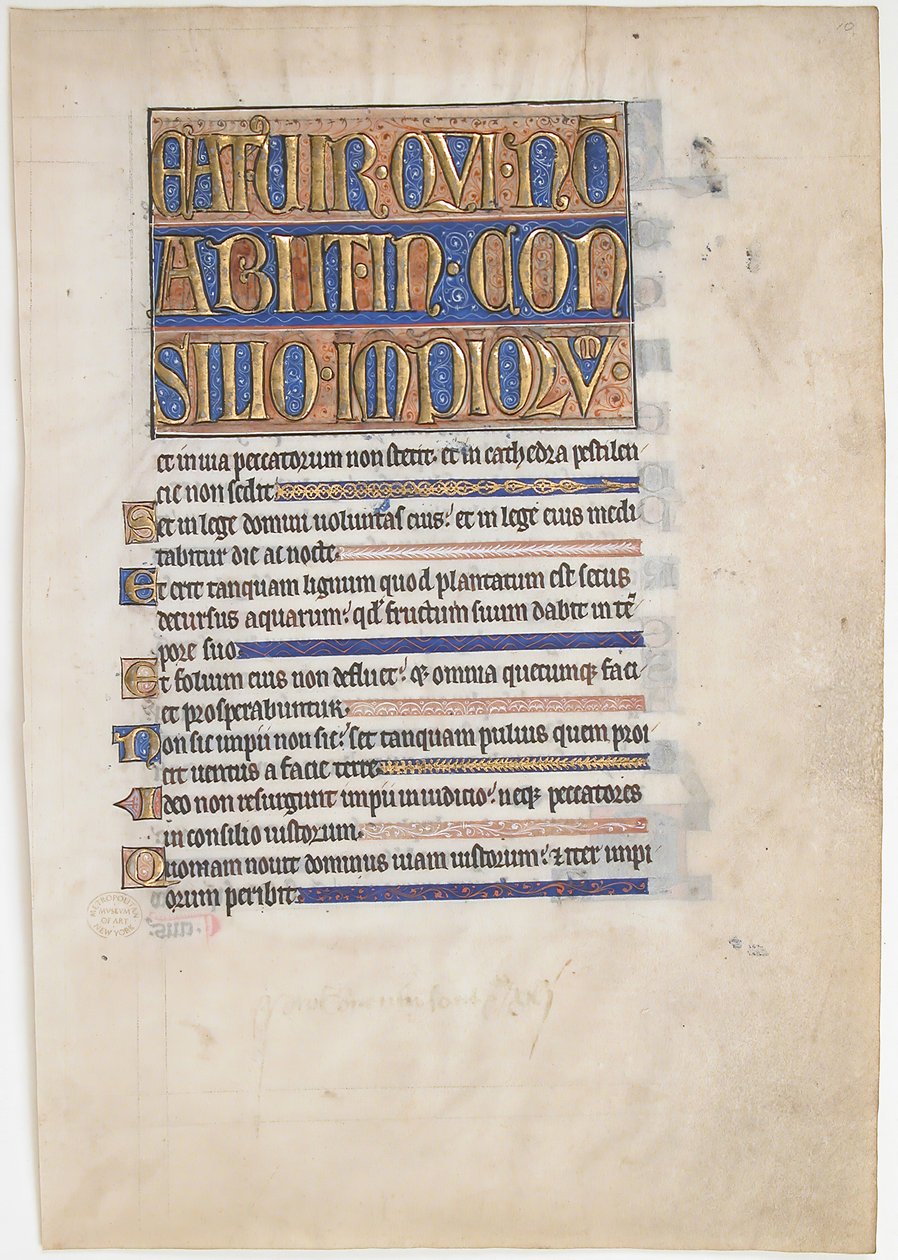 10
EATUIR·QUI·NŌ
ABIIT·IN·CON
SILIO·IMPIOꝜV̄·
et in uia peccatorum non stetit· et in cathedra pestilen
cie non sedit·
Set in lege domini uoluntas eius: et in lege eius medi
tabitur die ac nocte·
Et erit tanquam lignum quod plantatum est secus
decursus aquarum: qd' fructum suum dabit in tē
pore suo·
Et folium eius non defluet: & omnia quecumqꝫ faci
et prosperabuntur·
Non sic impii non sic: set tanquam puluis quem proi
cit uentus a facie terre·
Ideo non resurgunt impii in iudicio: neqꝫ peccatores
in consilio iustorum·
Quoniam nouit dominus uiam iustorum: ⁊ iter impi
orum peribit·
METROPOLITAN
MUSEUM
OF ART
NEW YORK